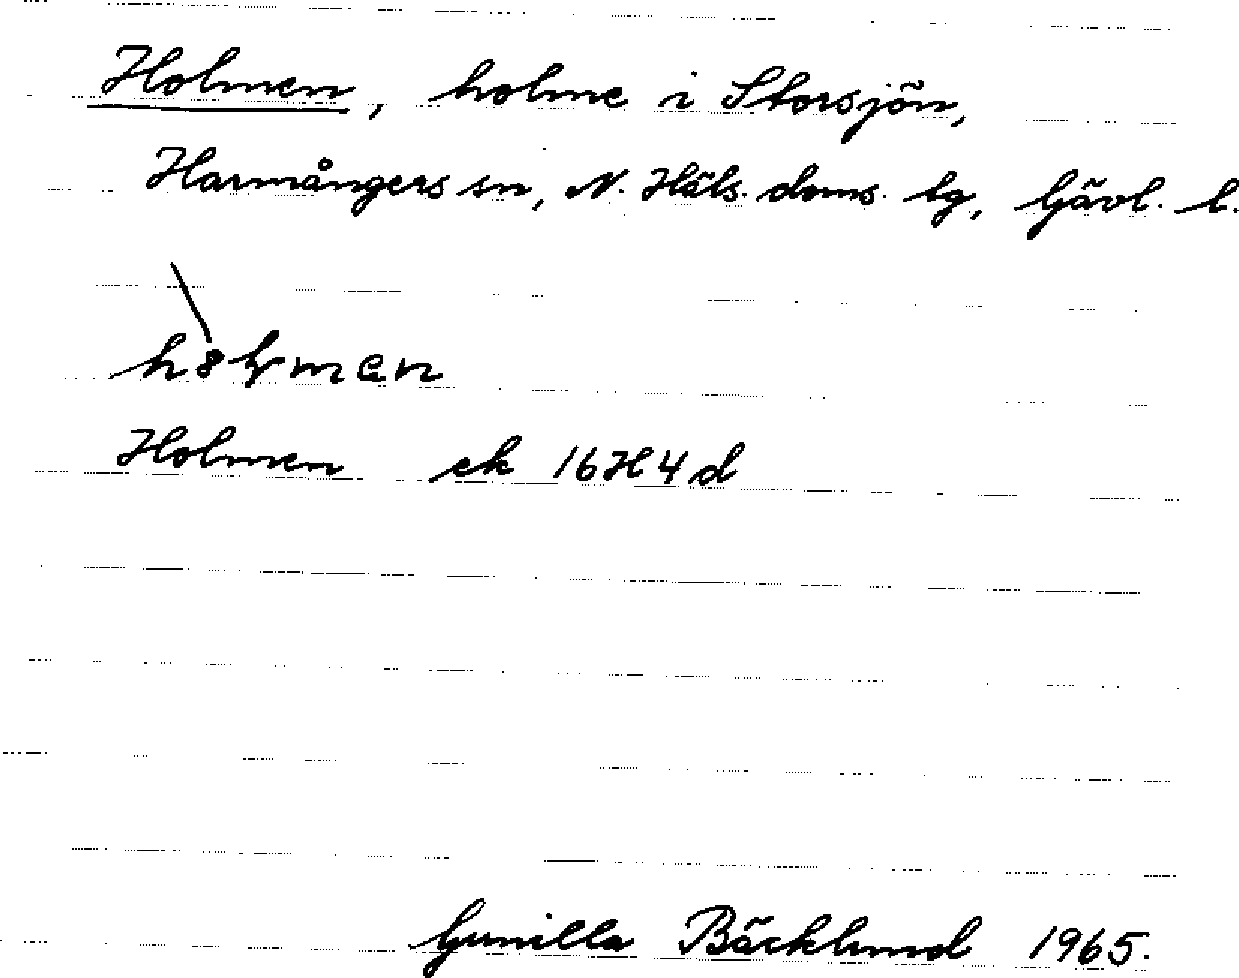 Holmen, holme i Storsjön,
Harmångers sn, N. Häls. doms. lg, Gävl. l.
Holmen ek 16H4d
Gunilla Bäcklund 1965.